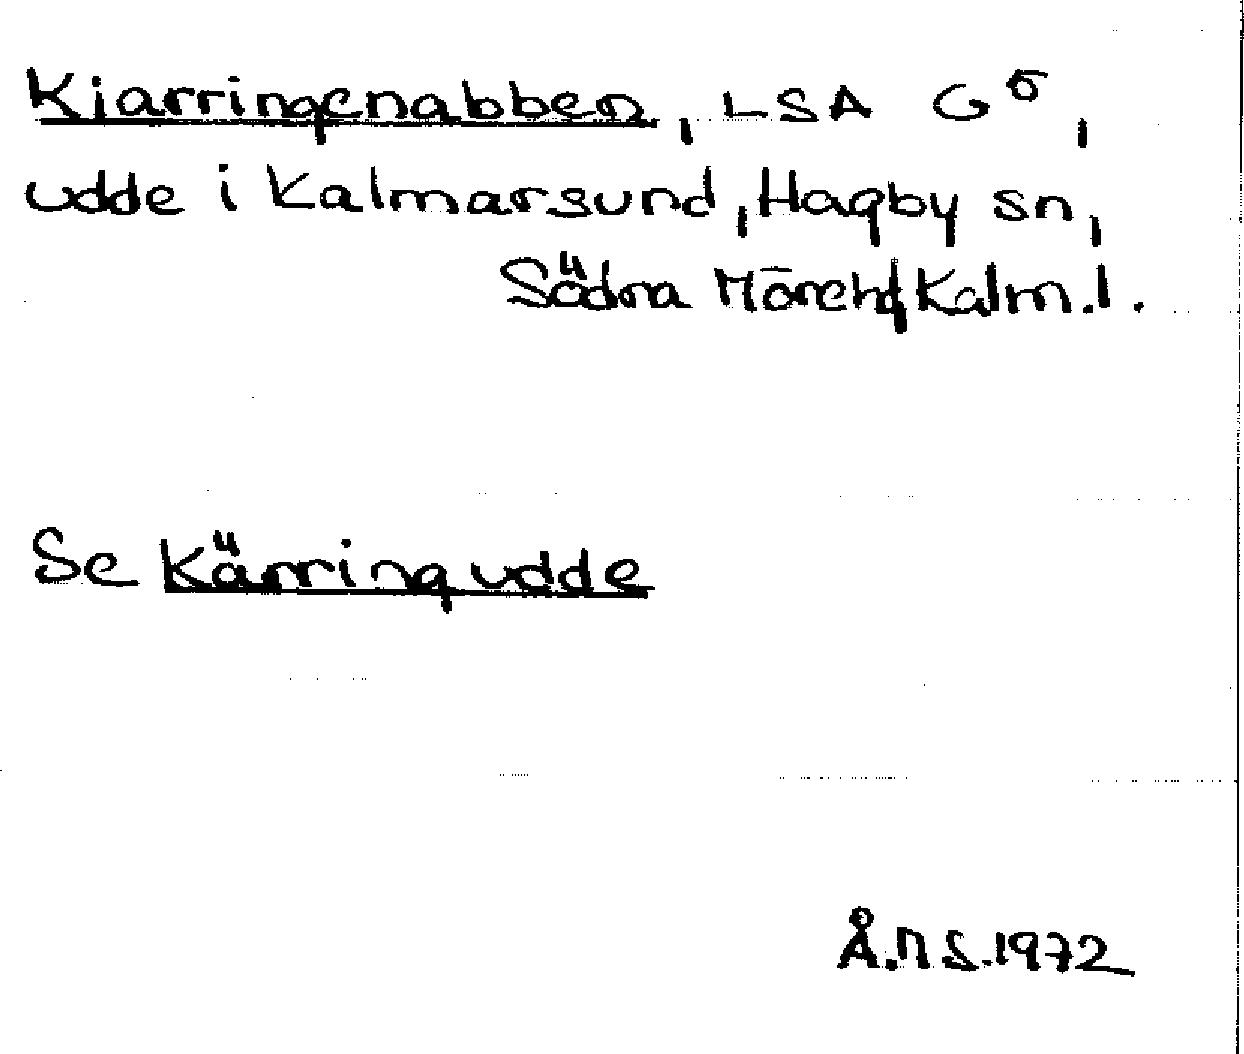 Kiarringenabben, LSA G⁵,
udde i Kalmarsund, Hagby sn,
Södra Möre hd, Kalm.l.
Se Kärringudde
Å.N S.1972